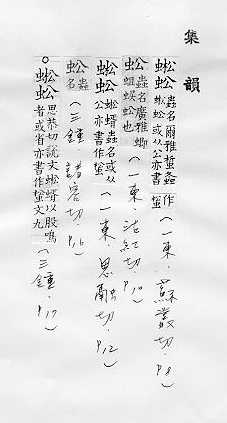 集韻
蜙蚣 蟲名爾雅蜤螽
蜙蚣或从公亦書作蜙(一東.蘇叢切.P.8)
蚣 蟲名廣雅蝍
蛆蜈蚣也(一東.沽紅切.P.10)
蜙蚣 蜙蝑蟲名或从
公亦書作蜙(一東.思融切.P.12)
蚣 蟲
名(三鍾.諸容切.P.16)
蜙蚣 思恭切說文蜙蝑以股鳴
者或省亦書作蜙文九(三鍾.P.17)